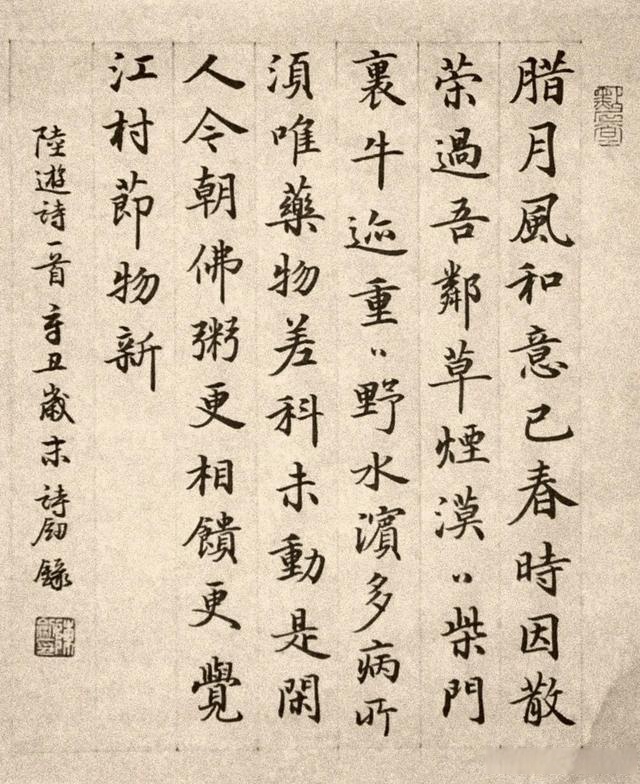 腊月風和意已春時因散
策過吾鄰草煙漠〻柴門
裏牛迹重〻野水濱多病所
湏唯藥物差科未動是閑
人今朝佛粥更相饋更覺
江村節物新
陸遊詩一首辛丑歲末詩錄